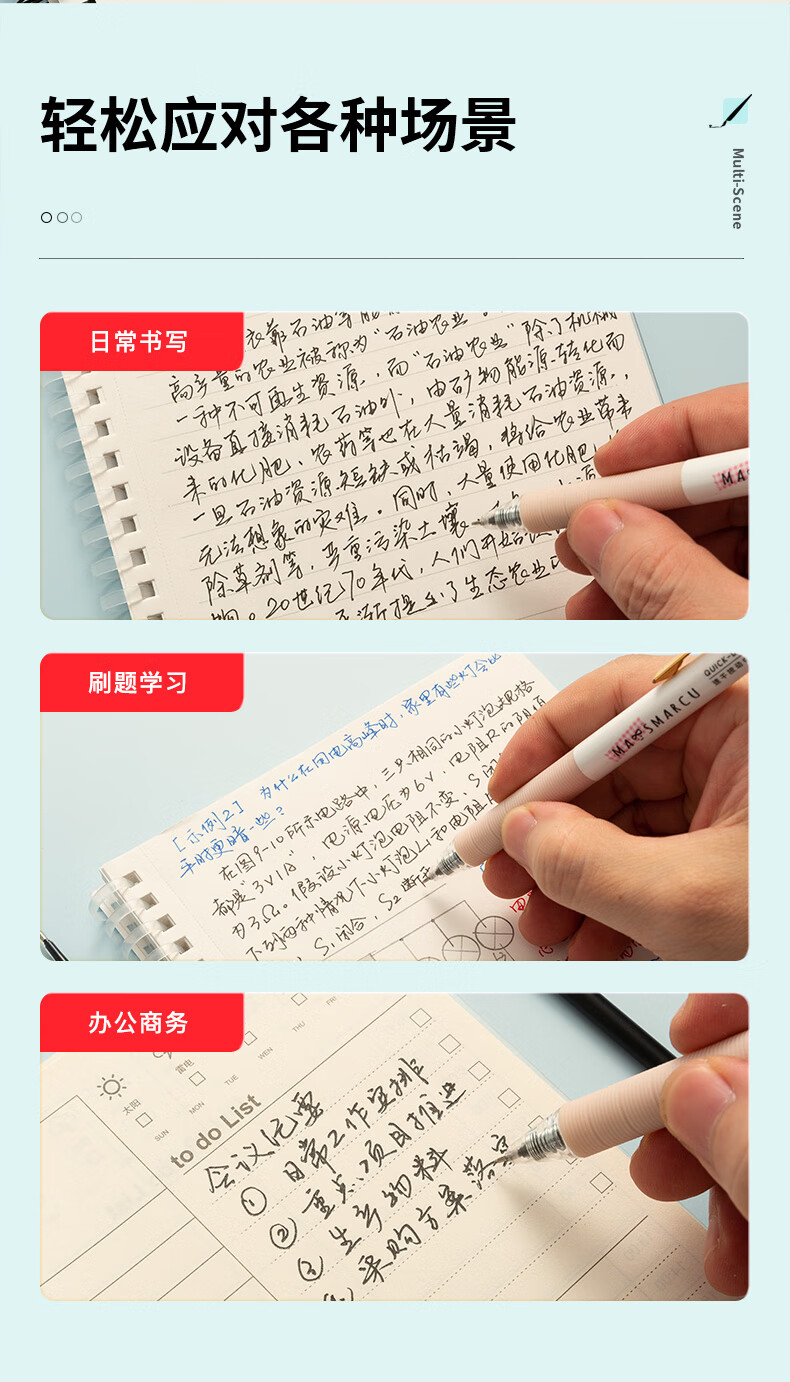 轻松应对各种场景
Multi-Scene
日常书写
高产量的农业被称为“石油农业”。
一种不可再生资源，而“石油农业”除了机械
设备直接消耗石油外，由矿物能源转化而
来的化肥、农药等也在大量消耗石油资源，
一旦石油资源短缺或枯竭，将给农业带来
无法想象的灾难。同时，大量使用化肥、
除草剂等，严重污染土壤
20世纪70年代，人们开始
提出了生态农业
刷题学习
[示例2] 为什么在用电高峰时，家里有些灯会比
平时更暗一些？
在图9-10所示电路中，三只相同的小灯泡规格
都是“3V1A”，电源电压为6V，电阻R的阻值
为3Ω。假设小灯泡电阻不变，S闭
下列两种情况下小灯泡L1和电阻
S1闭合，S2断开
QUICK-
MA SMARCU
办公商务
太阳
雷电
SUN
MON
TUE
WEN
THU
FRI
to do List
会议纪要
① 日常工作安排
② 重点项目推进
③ 生产物料
采购方案落实